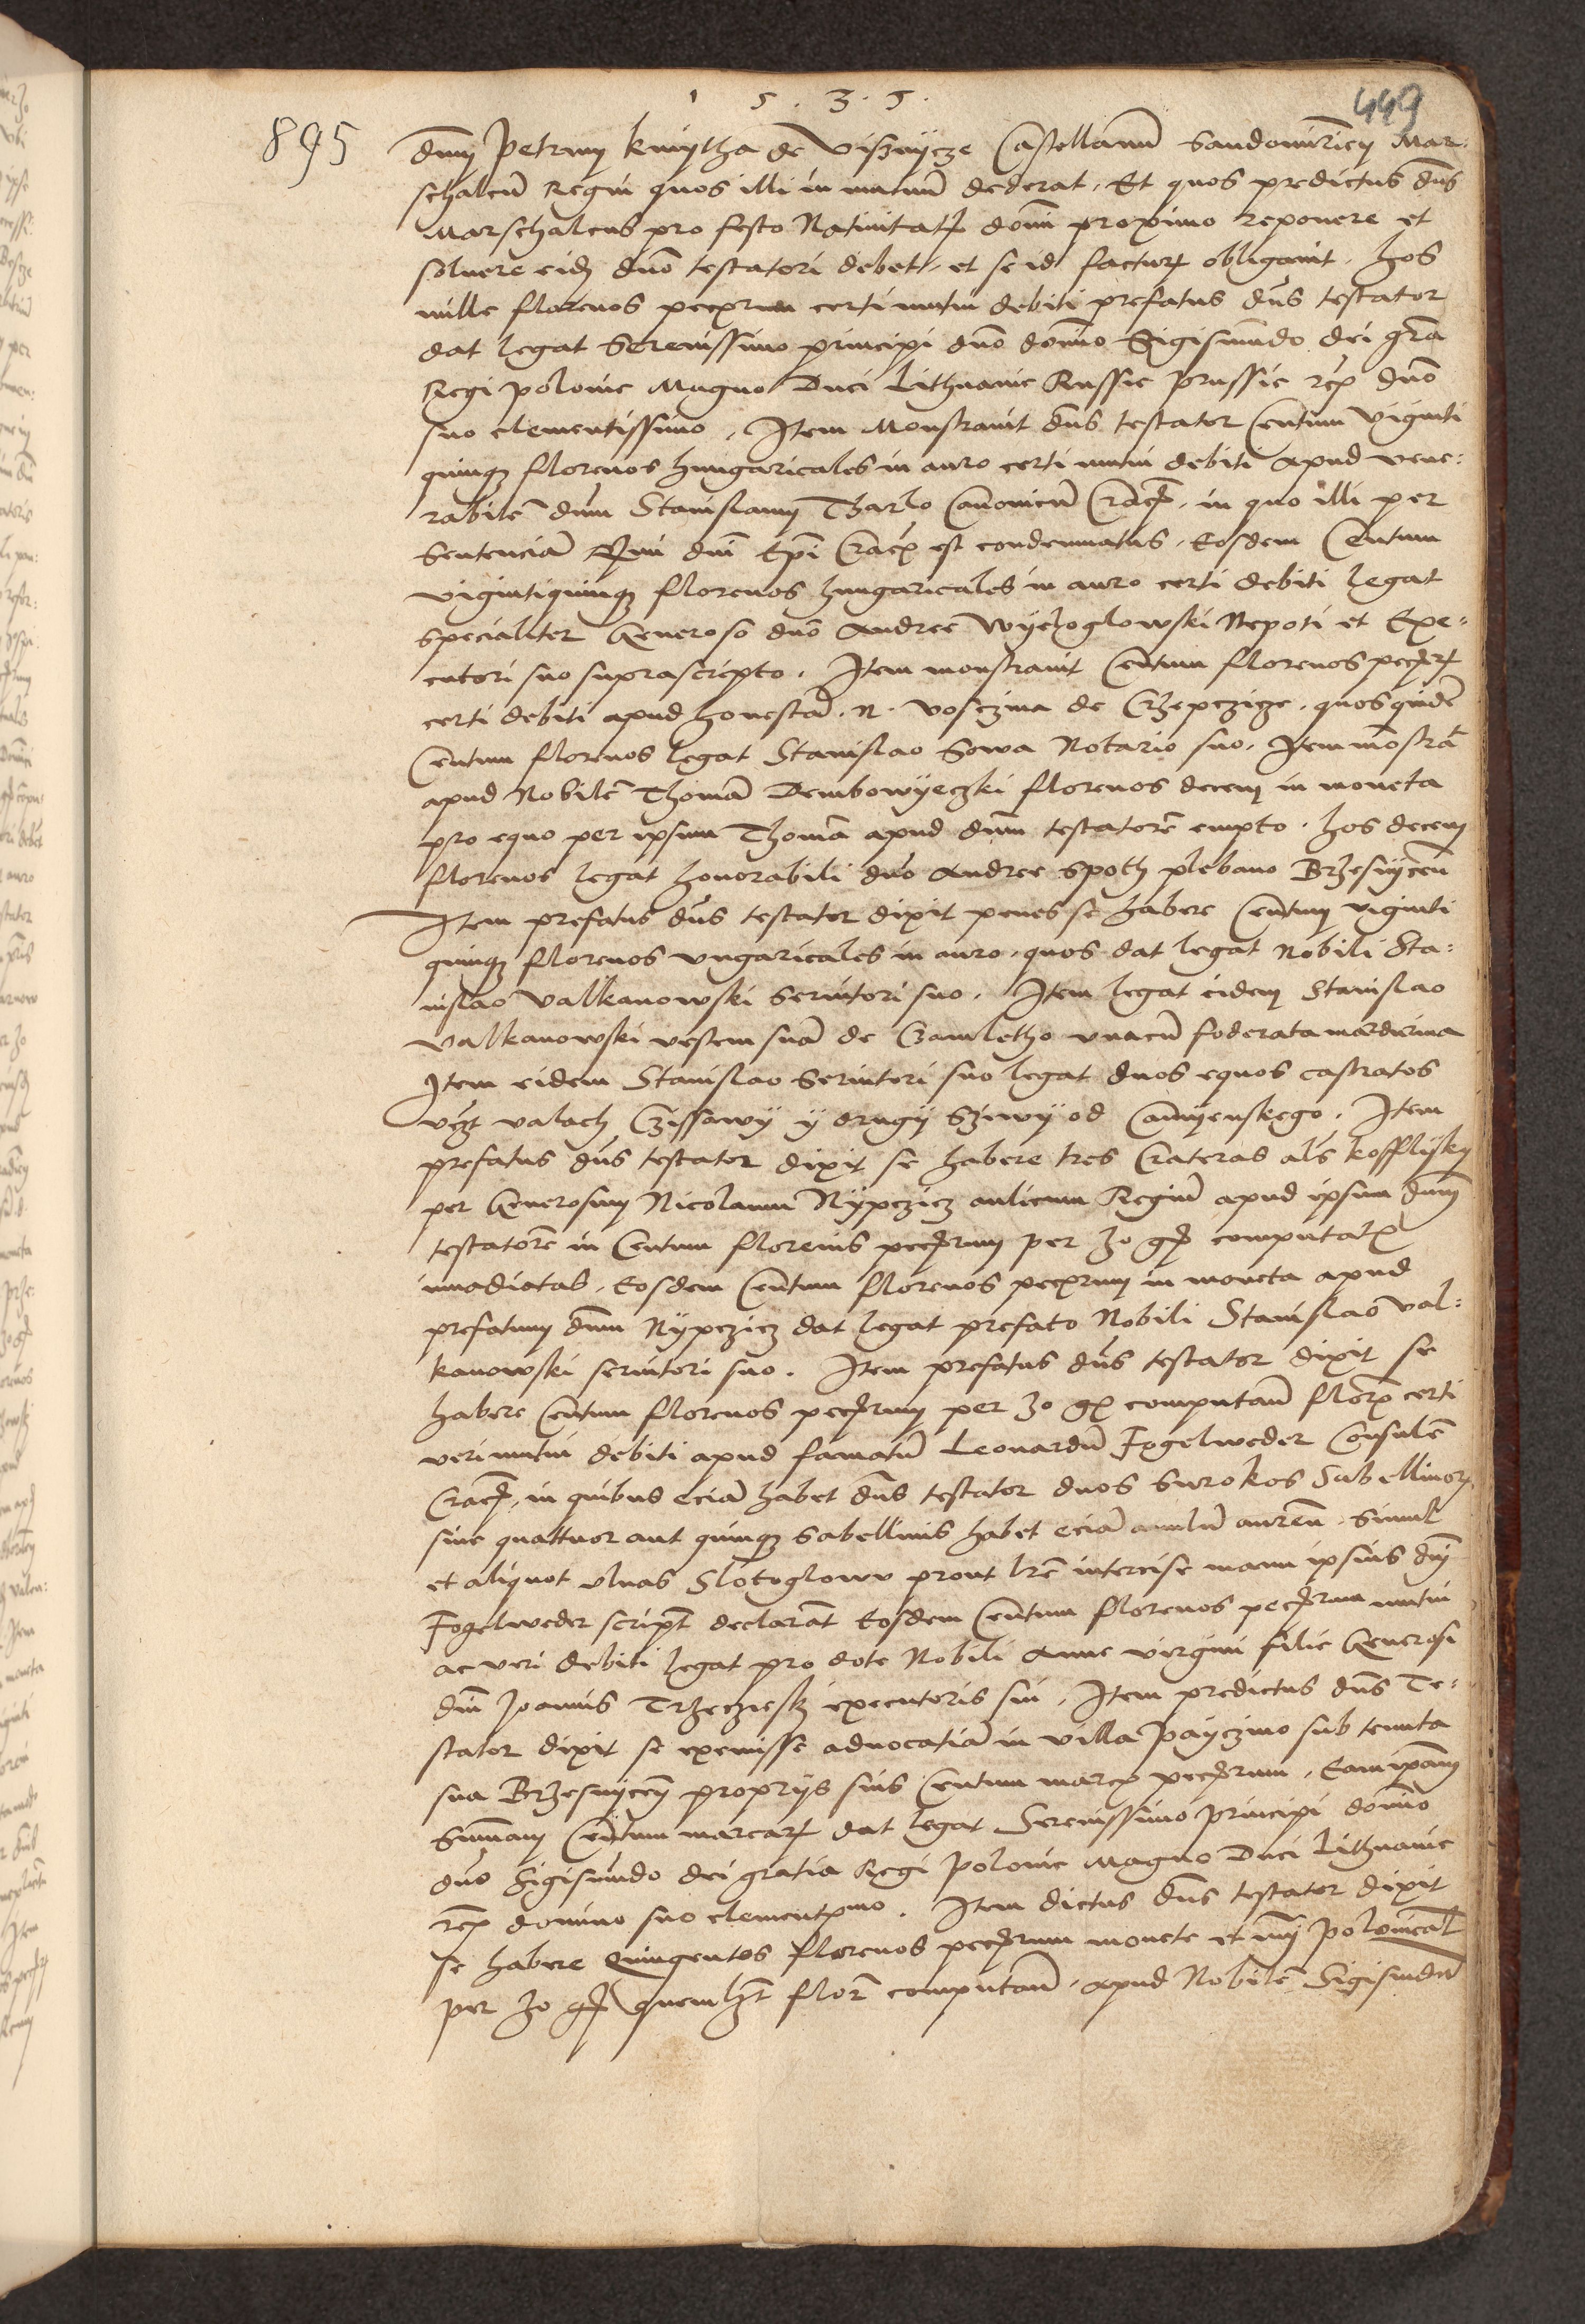 1 5 . 3 . 5 .
449
895
dnm̅ Petrum kmytha de Visznycze Castellanu̅ Sandomirien̅ Mar-
schalcu̅ Regni quos illi in mutuu̅ dederat. Et quos predictus dn̅s
Marschalcus pro festo Natiuitatis domi̅ proximo reponere et
soluere eid̅ dn̅o testatori debet. et se id facturu̅ obligauit. hos
mille florenos pecc̅arum certi mutui debiti prefatus dn̅s testator
dat legat Serenissimo principi dn̅o dom̅no Sigismundo dei gr̅a
Regi polonie Magno Duci Lithuanie Russie Prussie etc̅ dn̅o
suo clementissimo. Item Monstrauit dn̅s testator Centum Viginti
quinq̨ florenos hungaricales in auro certi mutui debiti apud vene:
rabile̅ dn̅m Stanislaum Tharlo Canonicu̅ Crac̅. in quo illi per
Sentencia̅ Rm̅i dn̅i Ep̅i Crac̅ est condemnatus. Eosdem Centum
vigintiquinq̨ florenos hungaricales in auro certi debiti legat
specialiter Generoso dn̅o Andree Wyeloglowski Nepoti et Exe-
cutori suo suprascripto. Item monstrauit Centum florenos pecc̅aru̅
certi debiti apud honesta̅ . N . Vosczina de Crzepczicze. quosquide̅
Centum florenos legat Stanislao Sowa Notario suo. Item mo̅stra̅t
apud Nobile̅ Thoma̅ Dembowyeczki florenos decem in moneta
pro equo per ipsum Thoma̅ apud dn̅m testatore̅ empto. hos decem
florenos legat honorabili dn̅o Andree Spoth plebano Brzesnycen̅
Item prefatus dn̅s testator dixit penes se habere Centum viginti
quinq̨ florenos vngaricales in auro. quos dat legat Nobili Sta:
nislao Valkanowski Seruitori suo. Item legat eidem Stanislao
Valkanowski vestem sua̅ de Czamletho vnacu̅ foderata mardurina
Item eidem Stanislao Seruitori suo legat duos equos castratos
vz̅t valach Czissawy y drugy Sziwy od Camyenskego. Item
prefatus dn̅s testator dixit se habere tres Crateras al̅s kofflyky
per Generosum Nicolaum Nypczicz aulicum Regiu̅ apud ipsum dn̅m
testatore̅ in Centum florenis pecc̅arum per 30 gr̅ computat̅
inuadiatas. Eosdem Centum florenos pecc̅arum in moneta apud
prefatum dn̅m Nypczicz dat legat prefato Nobili Stanislao Val:
kanowski seruitori suo. Item prefatus dn̅s testator dixit se
habere Centum florenos pecc̅arum per 30 gr̅ computan̅ flor̅ certi
veri mutui debiti apud famatu̅ Leonardu̅ Fogelweder Consule̅
Crac̅. in quibus ecia̅ habet dn̅s testator duos Surokos Sabellinor̅.
siue quattuor aut quinq̨ Sabellinis habet ecia̅ anulu̅ aureu̅. Simul
et aliquot vlnas Slotoglowu prout lr̅e intercise manu ipsius dn̅i
Fogelweder script̅ declara̅t Eosdem Centum florenos pecc̅arum mutui
ac veri debiti legat pro dote Nobili Anne virgini filie Generosi
dn̅i Joannis Trzeczieski executoris sui. Item predictus dn̅s Te-
stator dixit se exemisse aduocatia̅ in villa Payczno sub tenuta
sua Brzesnycen̅ proprys suis Centum marc̅ pecc̅arum. Eam ip̅am
Summam Centum marcaru̅ dat legat Serenissimo principi domi̅no
dn̅o Sigismu̅do dei gratia Regi Polonie Magno Duci Lithuanie
etc̅ domino suo clementmo̅. Item dictus dn̅s testator dixit
se habere Quingentos florenos pecc̅arum monete et nu̅i polonical̅
per 30 gr̅ quemlz̅t flor̅ computan̅. apud Nobile̅ Sigismu̅du̅